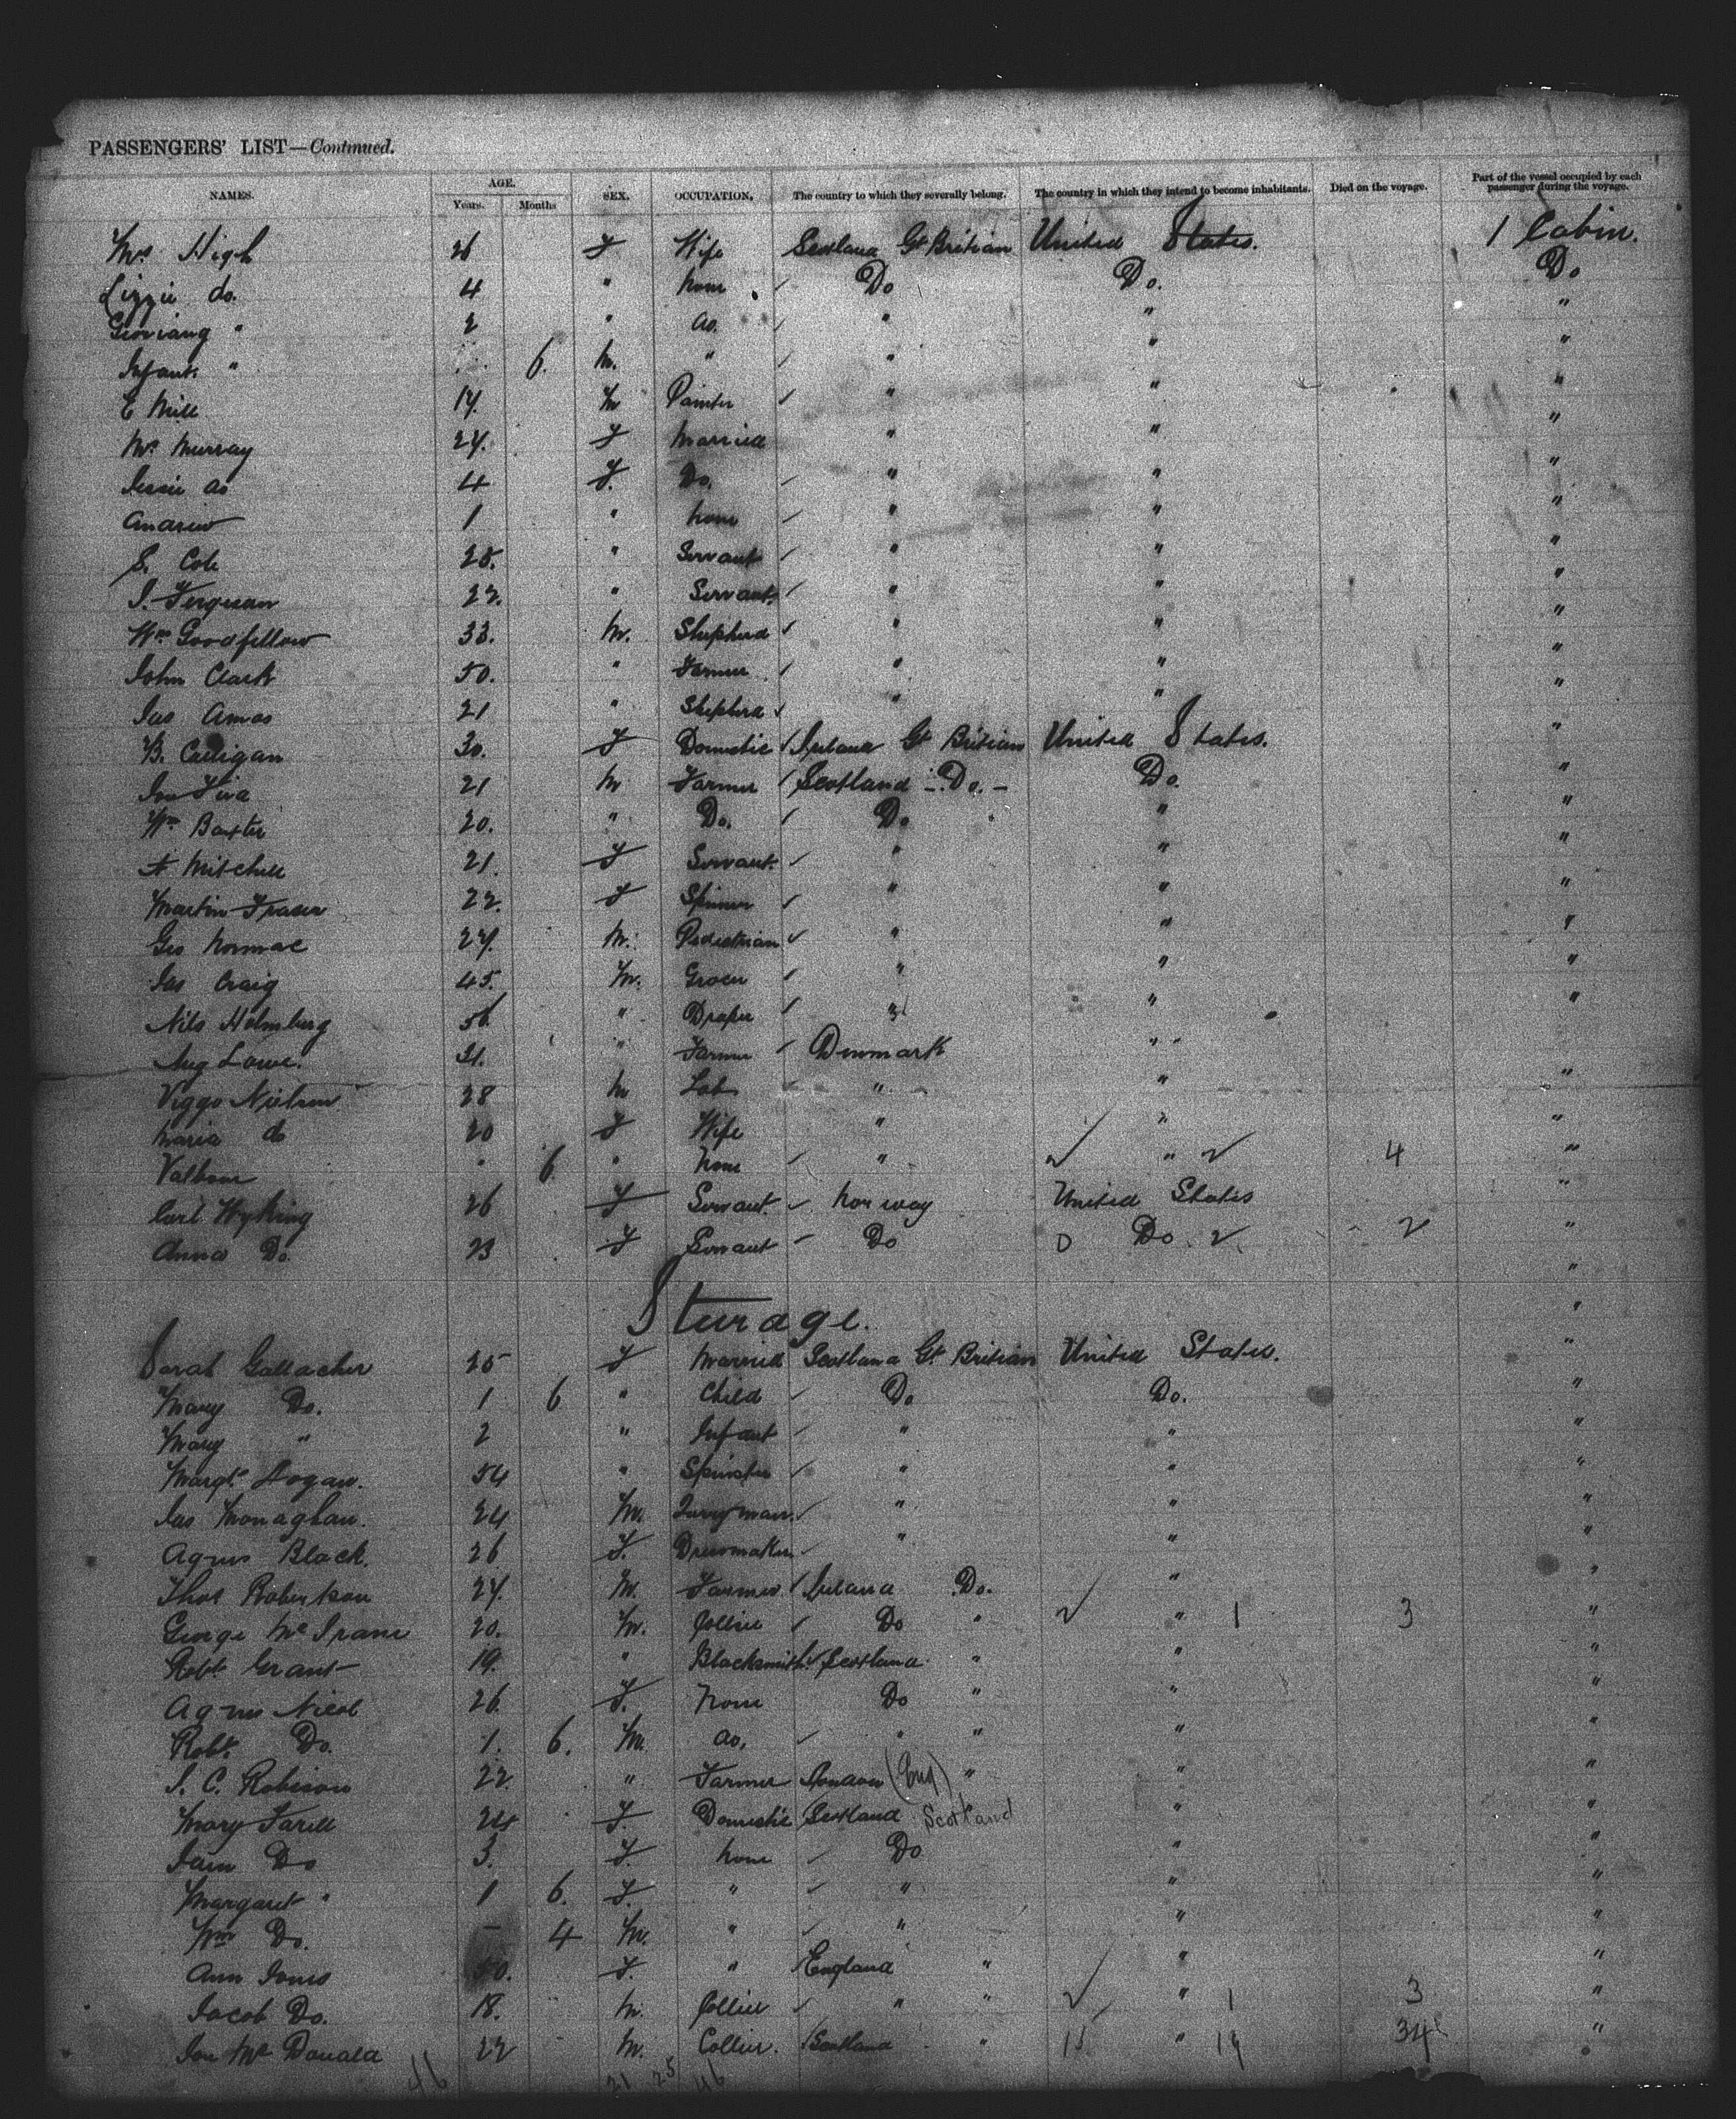 PASSENGERS' LIST—Continued.
NAMES. AGE. Years. Months SEX. OCCUPATION, The country to which they severally belong. The country in which they intend to become inhabitants. Died on the voyage. Part of the vessel occupied by each passenger during the voyage.
Mrs High 26 F Wife Scotland Gt Britian United States. 1 Cabin.
Lizzie do. 4 " none Do Do. Do
2 " do. " " "
Infant " 6. M. " " " "
E Mill 19. M Painter " " "
Mrs Murray 27. F Married " " "
Jessie do 4 F. Do. " " "
Andrew 1 " none " " "
S. Cole 25. " Servant " " "
J. Ferguson 22. " Servant. " " "
Wm Goodfellow 33. M. Shepherd " " "
John Clark 50. " Farmer " " "
Jas Amos 21 " Shepherd " " "
B. Calligan 30. F Domestic Ireland Gt Britian United States. "
21 M Farmer Scotland - Do. - Do. "
Wm Baxter 20. " Do. Do " "
A Mitchell 21. F Servant. " " "
Martin Fraser 22. F Spinner " " "
Geo 27. M. Pedestrian " " "
Jas Craig 45. M. Grocer " " "
Nils Holmberg 56 " Draper " " "
Aug Lowe. 31. " Farmer Denmark " "
Viggo Nielsen 28 M Lab " " "
Maria do 20 F Wife " " "
6 " None " " 4 "
Carl 26 F Servant. Norway United States "
Anna Do. 23 F Servant Do Do. 2 "
Sturage.
Sarah Gallacher 25 F Married Scotland Gt Britian United States. "
Mary Do. 1 6 " Child Do Do. "
Mary " 2 " Infant " " "
Margt. Logan. 54 " Spinster " " "
Jas Monaghan. 24 M. Quryman. " " "
Agnes Black. 26 F. Dressmaker " " "
Thos Robertson 27. M. Farmer Ireland Do. " "
George 20. M. Collier Do " " 1 3 "
Robt Grant 19. " Blacksmith Scotland " " "
Agnes Nicol 26. F. None Do " " "
Robt. Do. 1. 6. M. do. " " " "
J. C. Robison 22. " Farmer London (Eng) " " "
Mary Farell 24 F. Domestic Scotland Scotland " "
Do 3. F. none Do " "
Margaret " 1 6. F. " " " "
Wm Do. - 4 M. " " " "
Ann Jones 50. F. " England " " "
Jacob Do. 18. M. Collier " " " 1 3 "
Jon McDonald 22 M. Collier. Scotland " " 19 34 "
46 21 25 46